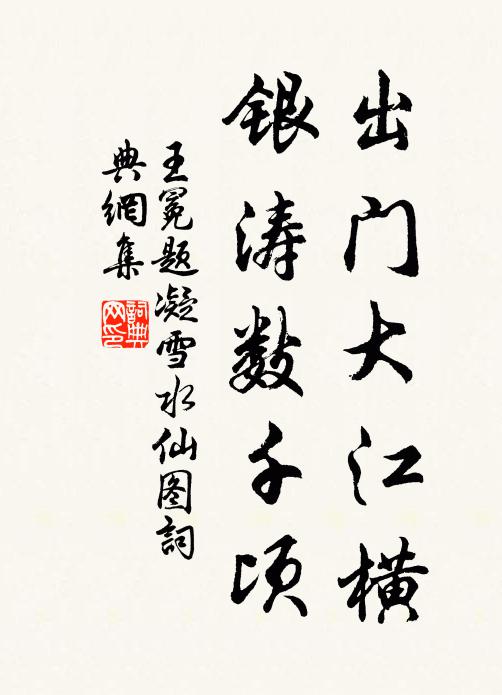 出门大江横
银涛数千顷
王冕题凝雪水仙图詞
典網集
詞典
网印